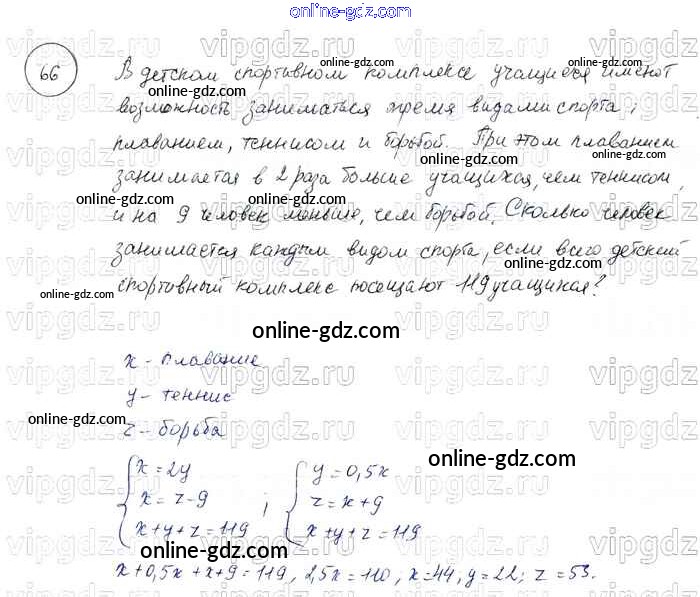 online-gdz.com
66
В детском спортивном комплексе учащиеся имеют
возможность заниматься тремя видами спорта:
плаванием, теннисом и борьбой. При этом плаванием
занимается в 2 раза больше учащихся, чем теннисом,
и на 9 человек меньше, чем борьбой. Сколько человек
занимается каждым видом спорта, если всего детский
спортивный комплекс посещают 119 учащихся?
online-gdz.com
x - плавание
y - теннис
z - борьба
online-gdz.com
{ x = 2y
x = z - 9
x + y + z = 119 ;
{ y = 0,5x
z = x + 9
x + y + z = 119
online-gdz.com
x + 0,5x + x + 9 = 119, 2,5x = 110; x = 44, y = 22; z = 53.
vipgdz.ru